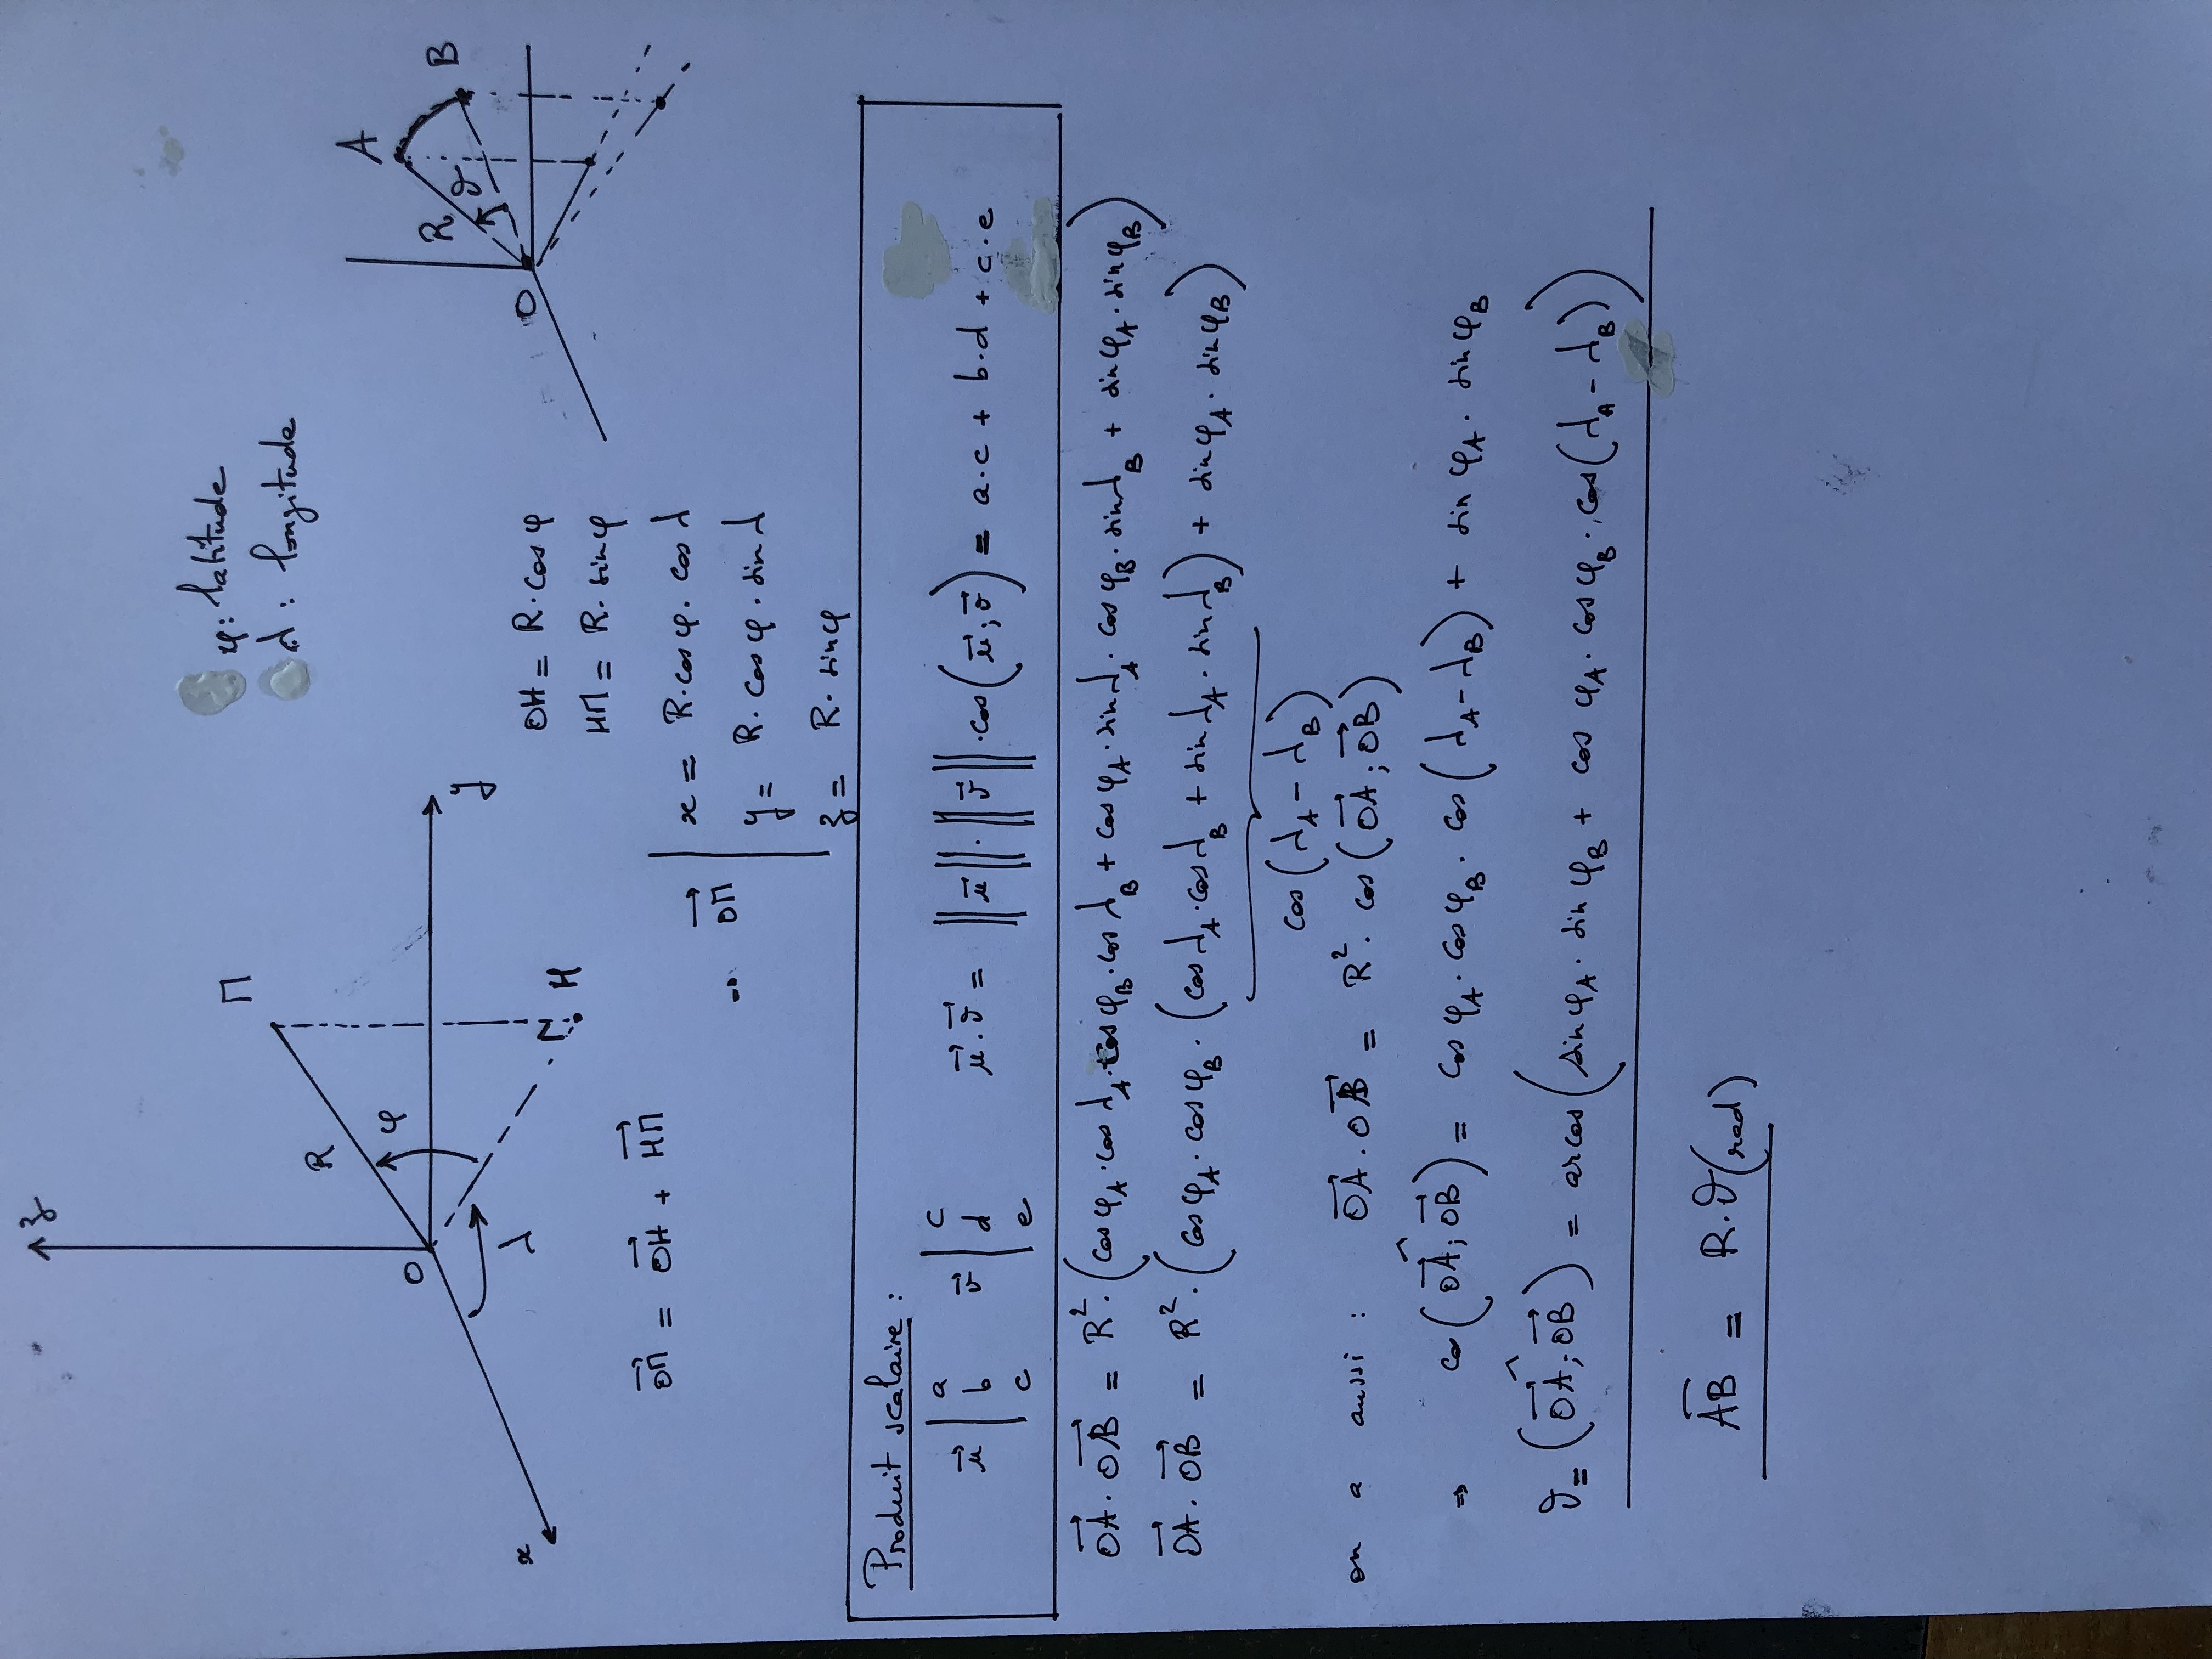 z
Π
φ: latitude
λ: longitude
R
φ
O
y
x
λ
H
A
R
ϑ
B
O
OH = R·cos φ
HΠ = R·sin φ
OΠ⃗ = OH⃗ + HΠ⃗
→ OΠ⃗ | x = R·cos φ · cos λ
y = R·cos φ · sin λ
z = R·sin φ
Produit scalaire :
u⃗ | a b c v⃗ | c d e u⃗·v⃗ = ‖u⃗‖·‖v⃗‖·cos(u⃗;v⃗) = a·c + b·d + c·e
OA⃗·OB⃗ = R²·(cos φ_A·cos λ_A·cos φ_B·cos λ_B + cos φ_A·sin λ_A·cos φ_B·sin λ_B + sin φ_A·sin φ_B)
OA⃗·OB⃗ = R²·(cos φ_A·cos φ_B·(cos λ_A·cos λ_B + sin λ_A·sin λ_B) + sin φ_A·sin φ_B)
cos(λ_A − λ_B)
on a aussi : OA⃗·OB⃗ = R²·cos(OA⃗;OB⃗)
⇒ cos(OA⃗;OB⃗) = cos φ_A·cos φ_B·cos(λ_A−λ_B) + sin φ_A·sin φ_B
ϑ = (OA⃗;OB⃗) = arcos(sin φ_A·sin φ_B + cos φ_A·cos φ_B·cos(λ_A−λ_B))
A͡B = R·ϑ(rad)